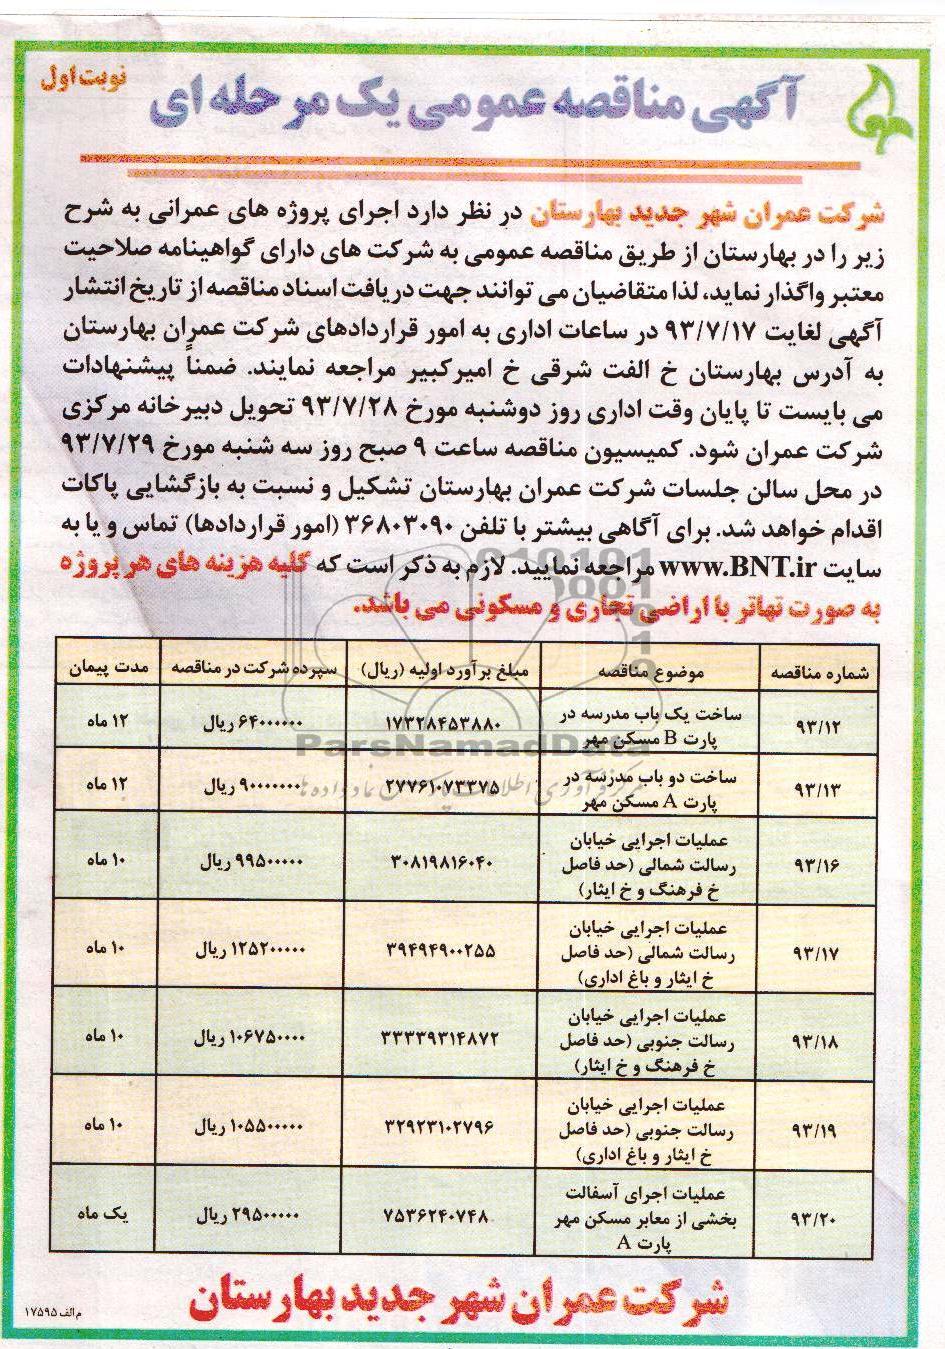 نوبت اول
آگهی مناقصه عمومی یک مرحله ای
شرکت عمران شهر جدید بهارستان در نظر دارد اجرای پروژه های عمرانی به شرح
زیر را در بهارستان از طریق مناقصه عمومی به شرکت های دارای گواهینامه صلاحیت
معتبر واگذار نماید، لذا متقاضیان می توانند جهت دریافت اسناد مناقصه از تاریخ انتشار
آگهی لغایت ۹۳/۷/۱۷ در ساعات اداری به امور قراردادهای شرکت عمران بهارستان
به آدرس بهارستان خ الفت شرقی خ امیرکبیر مراجعه نمایند. ضمناً پیشنهادات
می بایست تا پایان وقت اداری روز دوشنبه مورخ ۹۳/۷/۲۸ تحویل دبیرخانه مرکزی
شرکت عمران شود. کمیسیون مناقصه ساعت ۹ صبح روز سه شنبه مورخ ۹۳/۷/۲۹
در محل سالن جلسات شرکت عمران بهارستان تشکیل و نسبت به بازگشایی پاکات
اقدام خواهد شد. برای آگاهی بیشتر با تلفن ۳۶۸۰۳۰۹۰ (امور قراردادها) تماس و یا به
سایت www.BNT.ir مراجعه نمایید. لازم به ذکر است که کلیه هزینه های هر پروژه
به صورت تهاتر با اراضی تجاری و مسکونی می باشد.
شماره مناقصه موضوع مناقصه مبلغ برآورد اولیه (ریال) سپرده شرکت در مناقصه مدت پیمان
۹۳/۱۲ ساخت یک باب مدرسه در
پارت B مسکن مهر ۱۷۳۲۸۴۵۳۸۸۰ ۶۴۰۰۰۰۰۰ ریال ۱۲ ماه
۹۳/۱۳ ساخت دو باب مدرسه در
پارت A مسکن مهر ۲۷۷۶۱۰۷۳۳۷۵ ۹۰۰۰۰۰۰۰ ریال ۱۲ ماه
۹۳/۱۶ عملیات اجرایی خیابان
رسالت شمالی (حد فاصل
خ فرهنگ و خ ایثار) ۳۰۸۱۹۸۱۶۰۴۰ ۹۹۵۰۰۰۰۰ ریال ۱۰ ماه
۹۳/۱۷ عملیات اجرایی خیابان
رسالت شمالی (حد فاصل
خ ایثار و باغ اداری) ۳۹۴۹۴۹۰۰۲۵۵ ۱۲۵۲۰۰۰۰۰ ریال ۱۰ ماه
۹۳/۱۸ عملیات اجرایی خیابان
رسالت جنوبی (حد فاصل
خ فرهنگ و خ ایثار) ۳۳۳۳۹۳۱۴۸۷۲ ۱۰۶۷۵۰۰۰۰ ریال ۱۰ ماه
۹۳/۱۹ عملیات اجرایی خیابان
رسالت جنوبی (حد فاصل
خ ایثار و باغ اداری) ۳۲۹۲۳۱۰۲۷۹۶ ۱۰۵۵۰۰۰۰۰ ریال ۱۰ ماه
۹۳/۲۰ عملیات اجرای آسفالت
بخشی از معابر مسکن مهر
پارت A ۷۵۳۶۲۴۰۷۴۸ ۲۹۵۰۰۰۰۰ ریال یک ماه
ParsNamadData
شرکت عمران شهر جدید بهارستان
م الف ۱۷۵۹۵